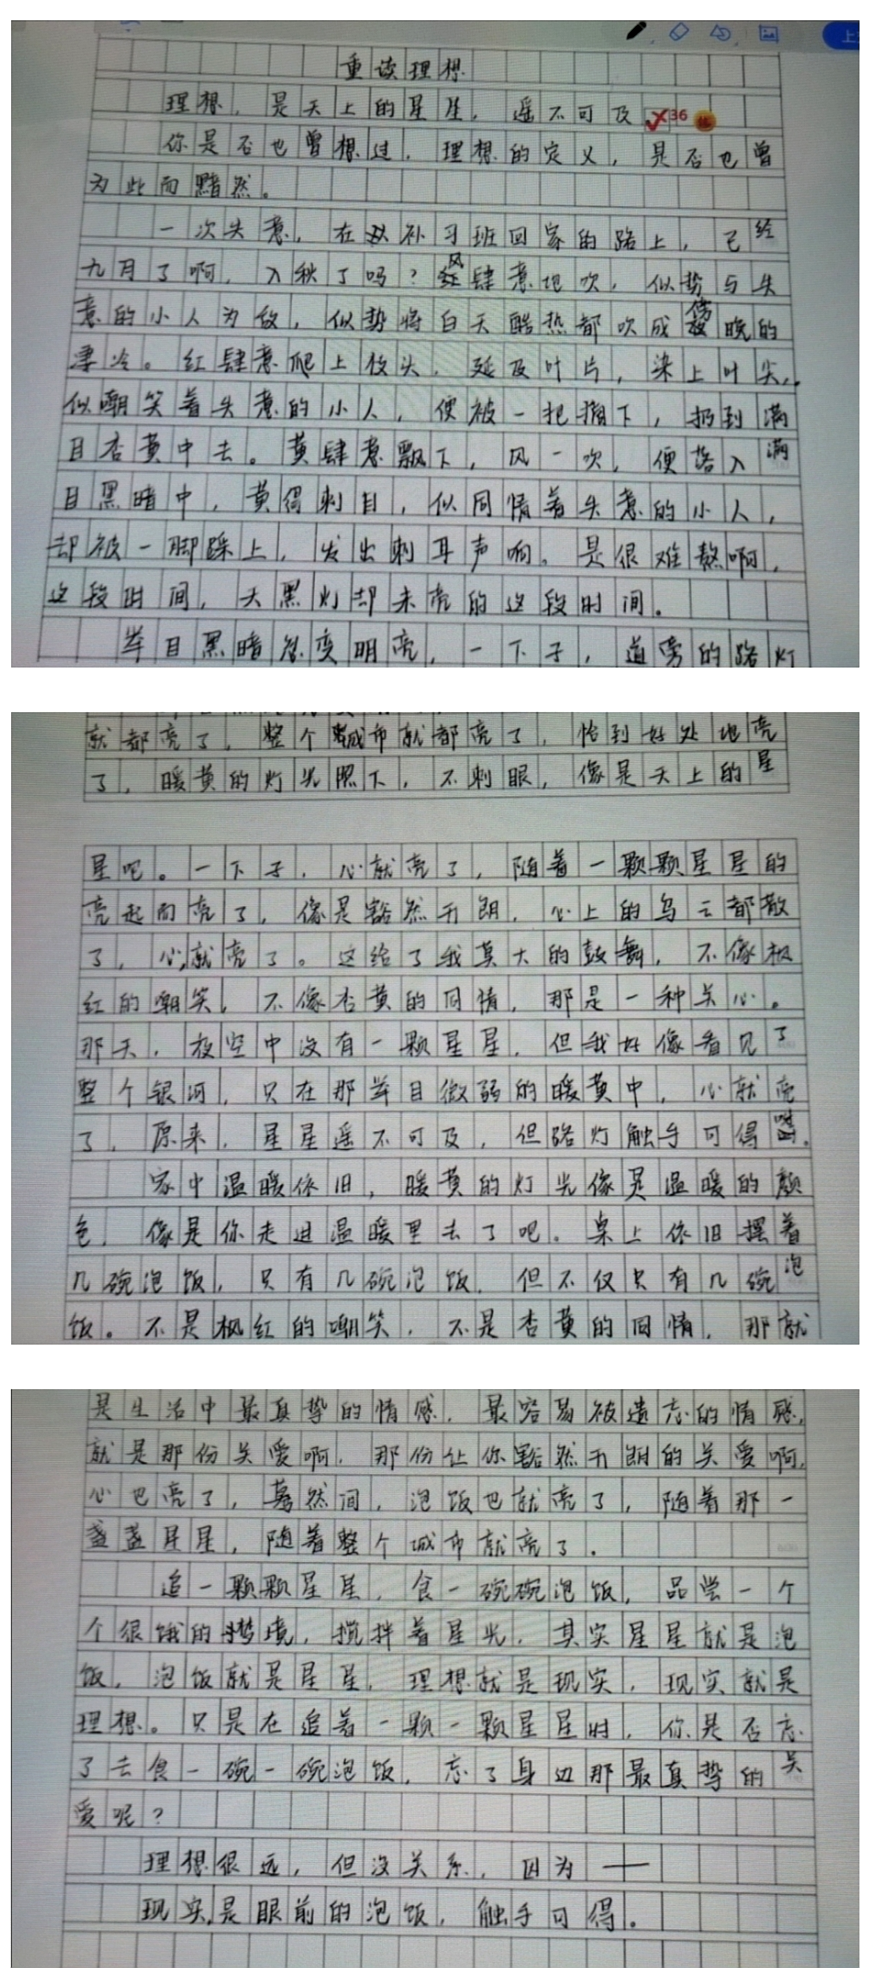 上
重读理想
理想，是天上的星星，遥不可及
36
你是否也曾想过，理想的定义，是否也曾
为此而黯然。
一次失意，在补习班回家的路上，已经
九月了啊，入秋了吗？风肆意地吹，似势与失
意的小人为敌，似势将白天酷热都吹成傍晚的
凄冷。红肆意爬上枝头，延及叶片，染上叶尖，
似嘲笑着失意的小人，便被一把摘下，扔到满
目杏黄中去。黄肆意飘下，风一吹，便落入满
目黑暗中，黄得刺目，似同情着失意的小人，
却被一脚踩上，发出刺耳声响。是很难熬啊，
这段时间，天黑灯却未亮的这段时间。
举目黑暗忽变明亮，一下子，道旁的路灯
就都亮了，整个城市就都亮了，恰到好处地亮
了，暖黄的灯光照下，不刺眼，像是天上的星
星吧。一下子，心就亮了，随着一颗颗星星的
亮起而亮了，像是豁然开朗，心上的乌云都散
了，心就亮了。这给了我莫大的鼓舞，不像枫
红的嘲笑，不像杏黄的同情，那是一种关心。
那天，夜空中没有一颗星星，但我好像看见了
整个银河，只在那举目微弱的暖黄中，心就亮
了，原来，星星遥不可及，但路灯触手可得啊。
家中温暖依旧，暖黄的灯光像是温暖的颜
色，像是你走进温暖里去了吧。桌上依旧摆着
几碗泡饭，只有几碗泡饭，但不仅只有几碗泡
饭。不是枫红的嘲笑，不是杏黄的同情，那就
是生活中最真挚的情感，最容易被遗忘的情感，
就是那份关爱啊，那份让你豁然开朗的关爱啊，
心也亮了，蓦然间，泡饭也就亮了，随着那一
盏盏星星，随着整个城市就亮了。
追一颗颗星星，食一碗碗泡饭，品尝一个
个很饿的梦境，搅拌着星光，其实星星就是泡
饭，泡饭就是星星，理想就是现实，现实就是
理想。只是在追着一颗一颗星星时，你是否忘
了去食一碗一碗泡饭，忘了身边那最真挚的关
爱呢？
理想很远，但没关系，因为——
现实是眼前的泡饭，触手可得。